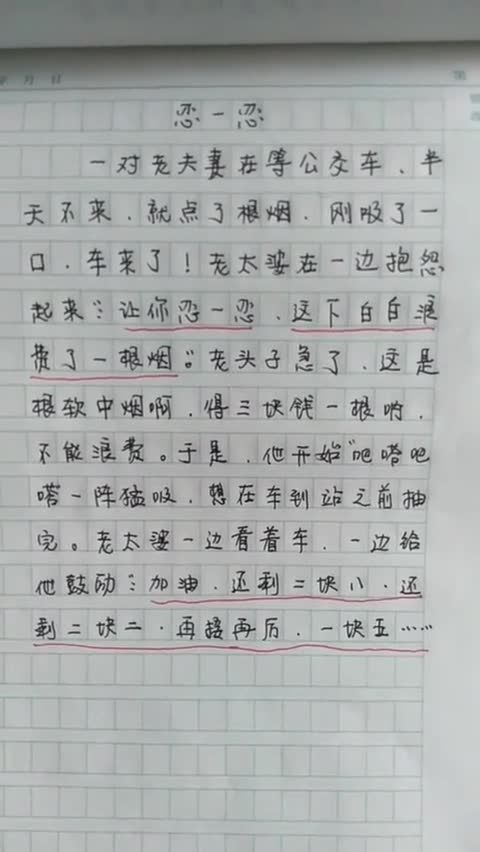 年 月 日 第
忍一忍
一对老夫妻在等公交车、半
天不来、就点了根烟、刚吸了一
口、车来了！老太婆在一边抱怨
起来：让你忍一忍、这下白白浪
费了一根烟。老头子急了、这是
根软中烟啊、得三块钱一根哟、
不能浪费。于是、他开始"吧嗒吧
嗒一阵猛吸、想在车到站之前抽
完。老太婆一边看着车、一边给
他鼓励：加油、还剩二块八、还
剩二块二、再接再厉、一块五……